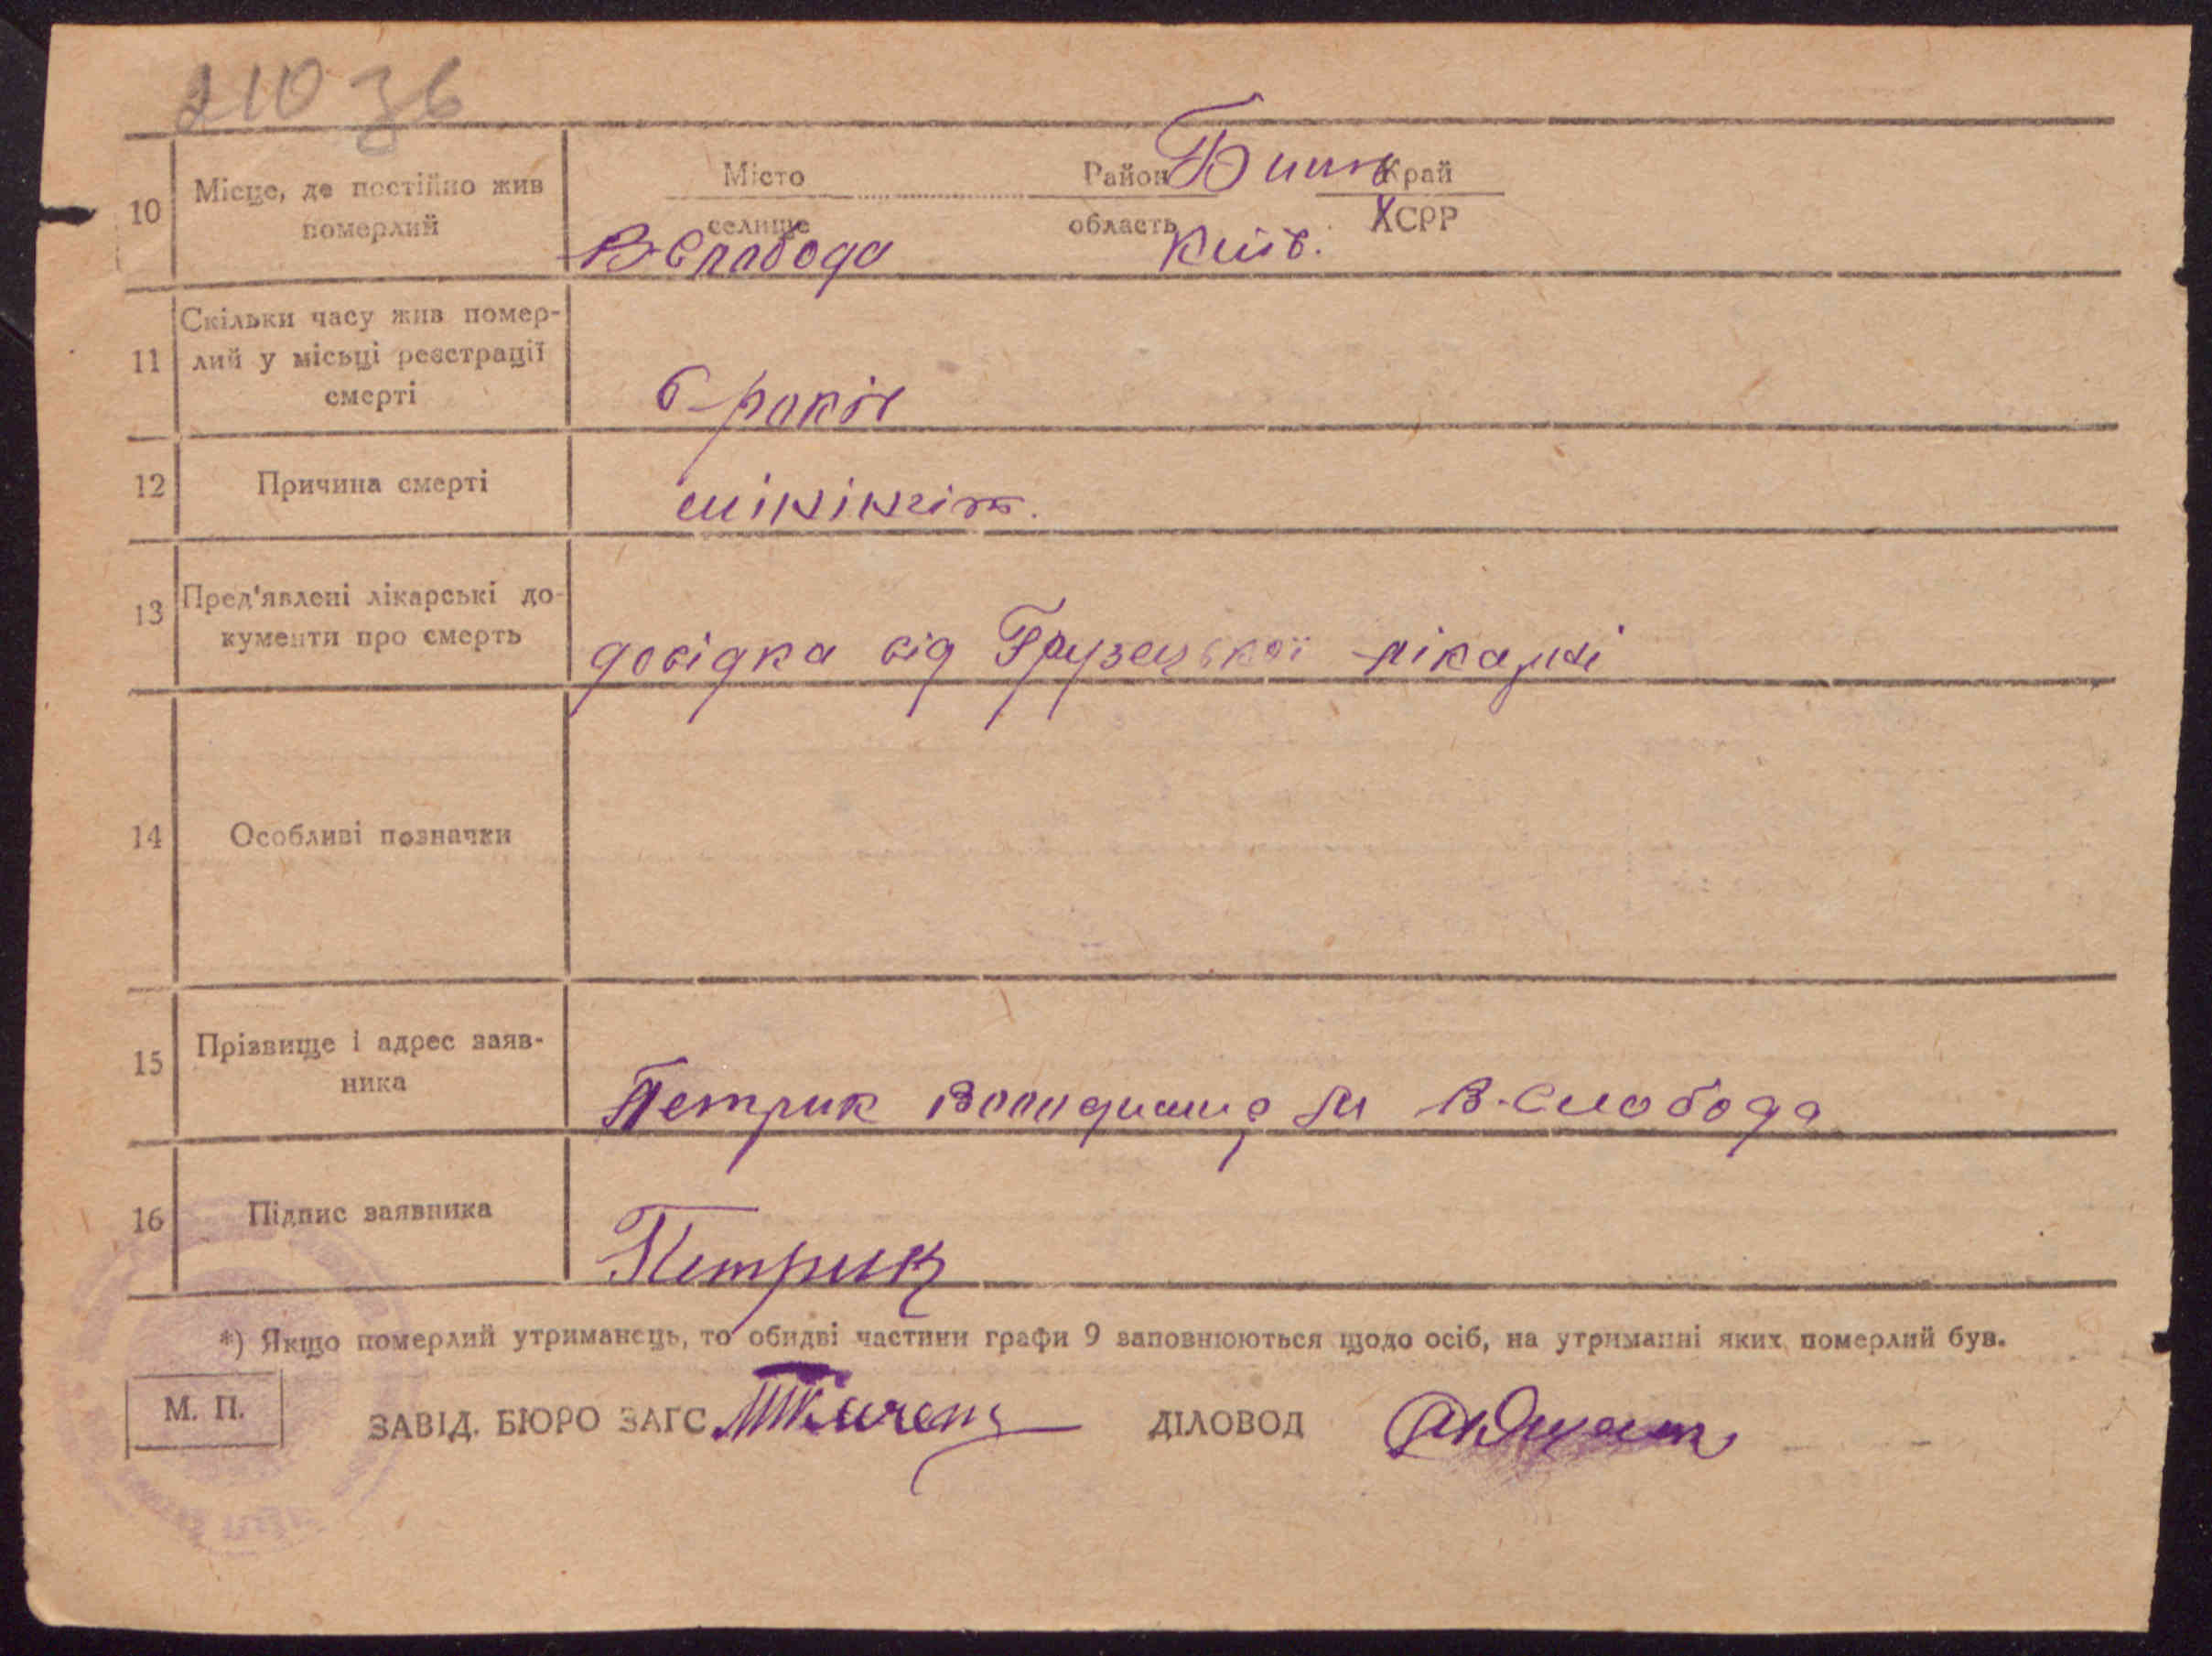 210 зв
10 Місце, де постійно жив Місто Район Бишв Край
померлий селище область ХСРР
В-Слабода Київ.
Скільки часу жив помер-
11 лий у місьці реєстрації
смерті
6 років
12 Причина смерті мінінгіт.
13 Пред'явлені лікарські до-
кументи про смерть
довідка від Грузецької лікарні
14 Особливі позначки
15 Прізвище і адрес заяв-
ника
Петрик В-Слобода
16 Підпис заявника
Петрик
*) Якщо померлий утриманець, то обидві частини графи 9 заповнюються щодо осіб, на утриманні яких померлий був.
М. П. ЗАВІД. БЮРО ЗАГС ДІЛОВОД